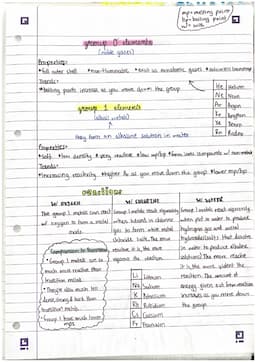 mp = melting point
bp = boiling point
w/ = with
group 0 elements
(noble gases)
Properties:
• full outer shell • non-flammable • exist as monatomic gases • colourless
Trends:
• boiling points increase as you move down the group
He Helium
Ne Neon
Ar Argon
Kr Krypton
Xe Xenon
Rn Radon
group 1 elements
(alkali metals)
they form an alkaline solution in water
Properties:
• soft • low density • very reactive • low mp/bp • form ionic compounds w/ non-metals
Trends:
• increasing reactivity • higher Ar as you move down the group • lower mp/bp
reactions
W/ OXYGEN
The group 1 metals can react
w/ oxygen to form a metal
oxide
Comparison to transition
• Group 1 metals are
much more reactive than
transition metals
• They're also much less
dense, strong & hard than
transition metals
Group 1 have much lower
mps
W/ CHLORINE
Group 1 metals react vigorously
when heated in chlorine
gas to form white metal
chloride salts. The more
reactive it is, the more
vigorous the reaction
Li Lithium
Na Sodium
K Potassium
Rb Rubidium
Cs Caesium
Fr Francium
W/ WATER
Group 1 metals react vigorously
when put in water to produce
hydrogen gas and metal
hydroxides (salts that dissolve
in water to produce alkaline
solutions). The more reactive
it is, the more violent the
reaction. The amount of
energy given out from reaction
increases as you move down
the group.